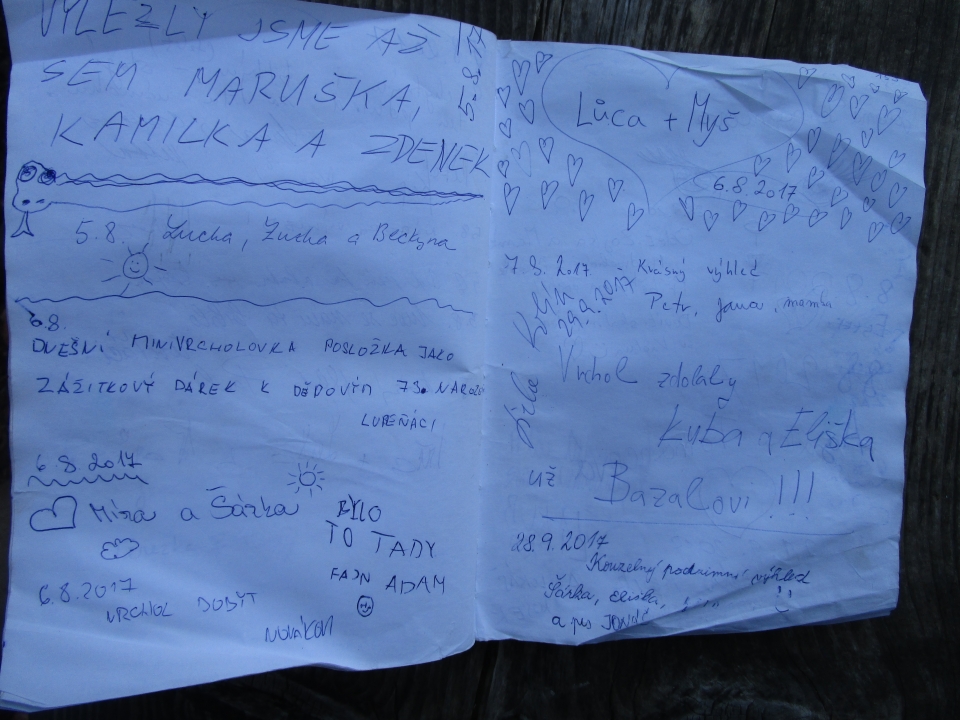 VYLEZLY JSME AŽ
SEM MARUŠKA,
KAMILKA A ZDENEK
5.8. 17
5.8. Zucha, Zucha a Beckyna
6.8.
DNEŠNÍ MINIVRCHOLOVKA POSLOŽKA JAKO
ZÁŽITKOVÝ DÁREK K DĚDOVÝM 73. NAROZO
LUPEŇÁCI
6.8.2017
Míra a Šárka
BYLO
TO TADY
FAJN ADAM
6.8.2017
VRCHOL DOBYT
NOVÁKOVI
Lůca + Myš
6.8.2017
7.8.2017 Krásný výhled
Petr, Jana, mamka
29.9.2017
Vrchol zdolaly
Kuba a Eliška
už
Bazalovi !!!
28.9.2017
Kouzelný podzimní výhled
Šárka, Eliška,
a pes